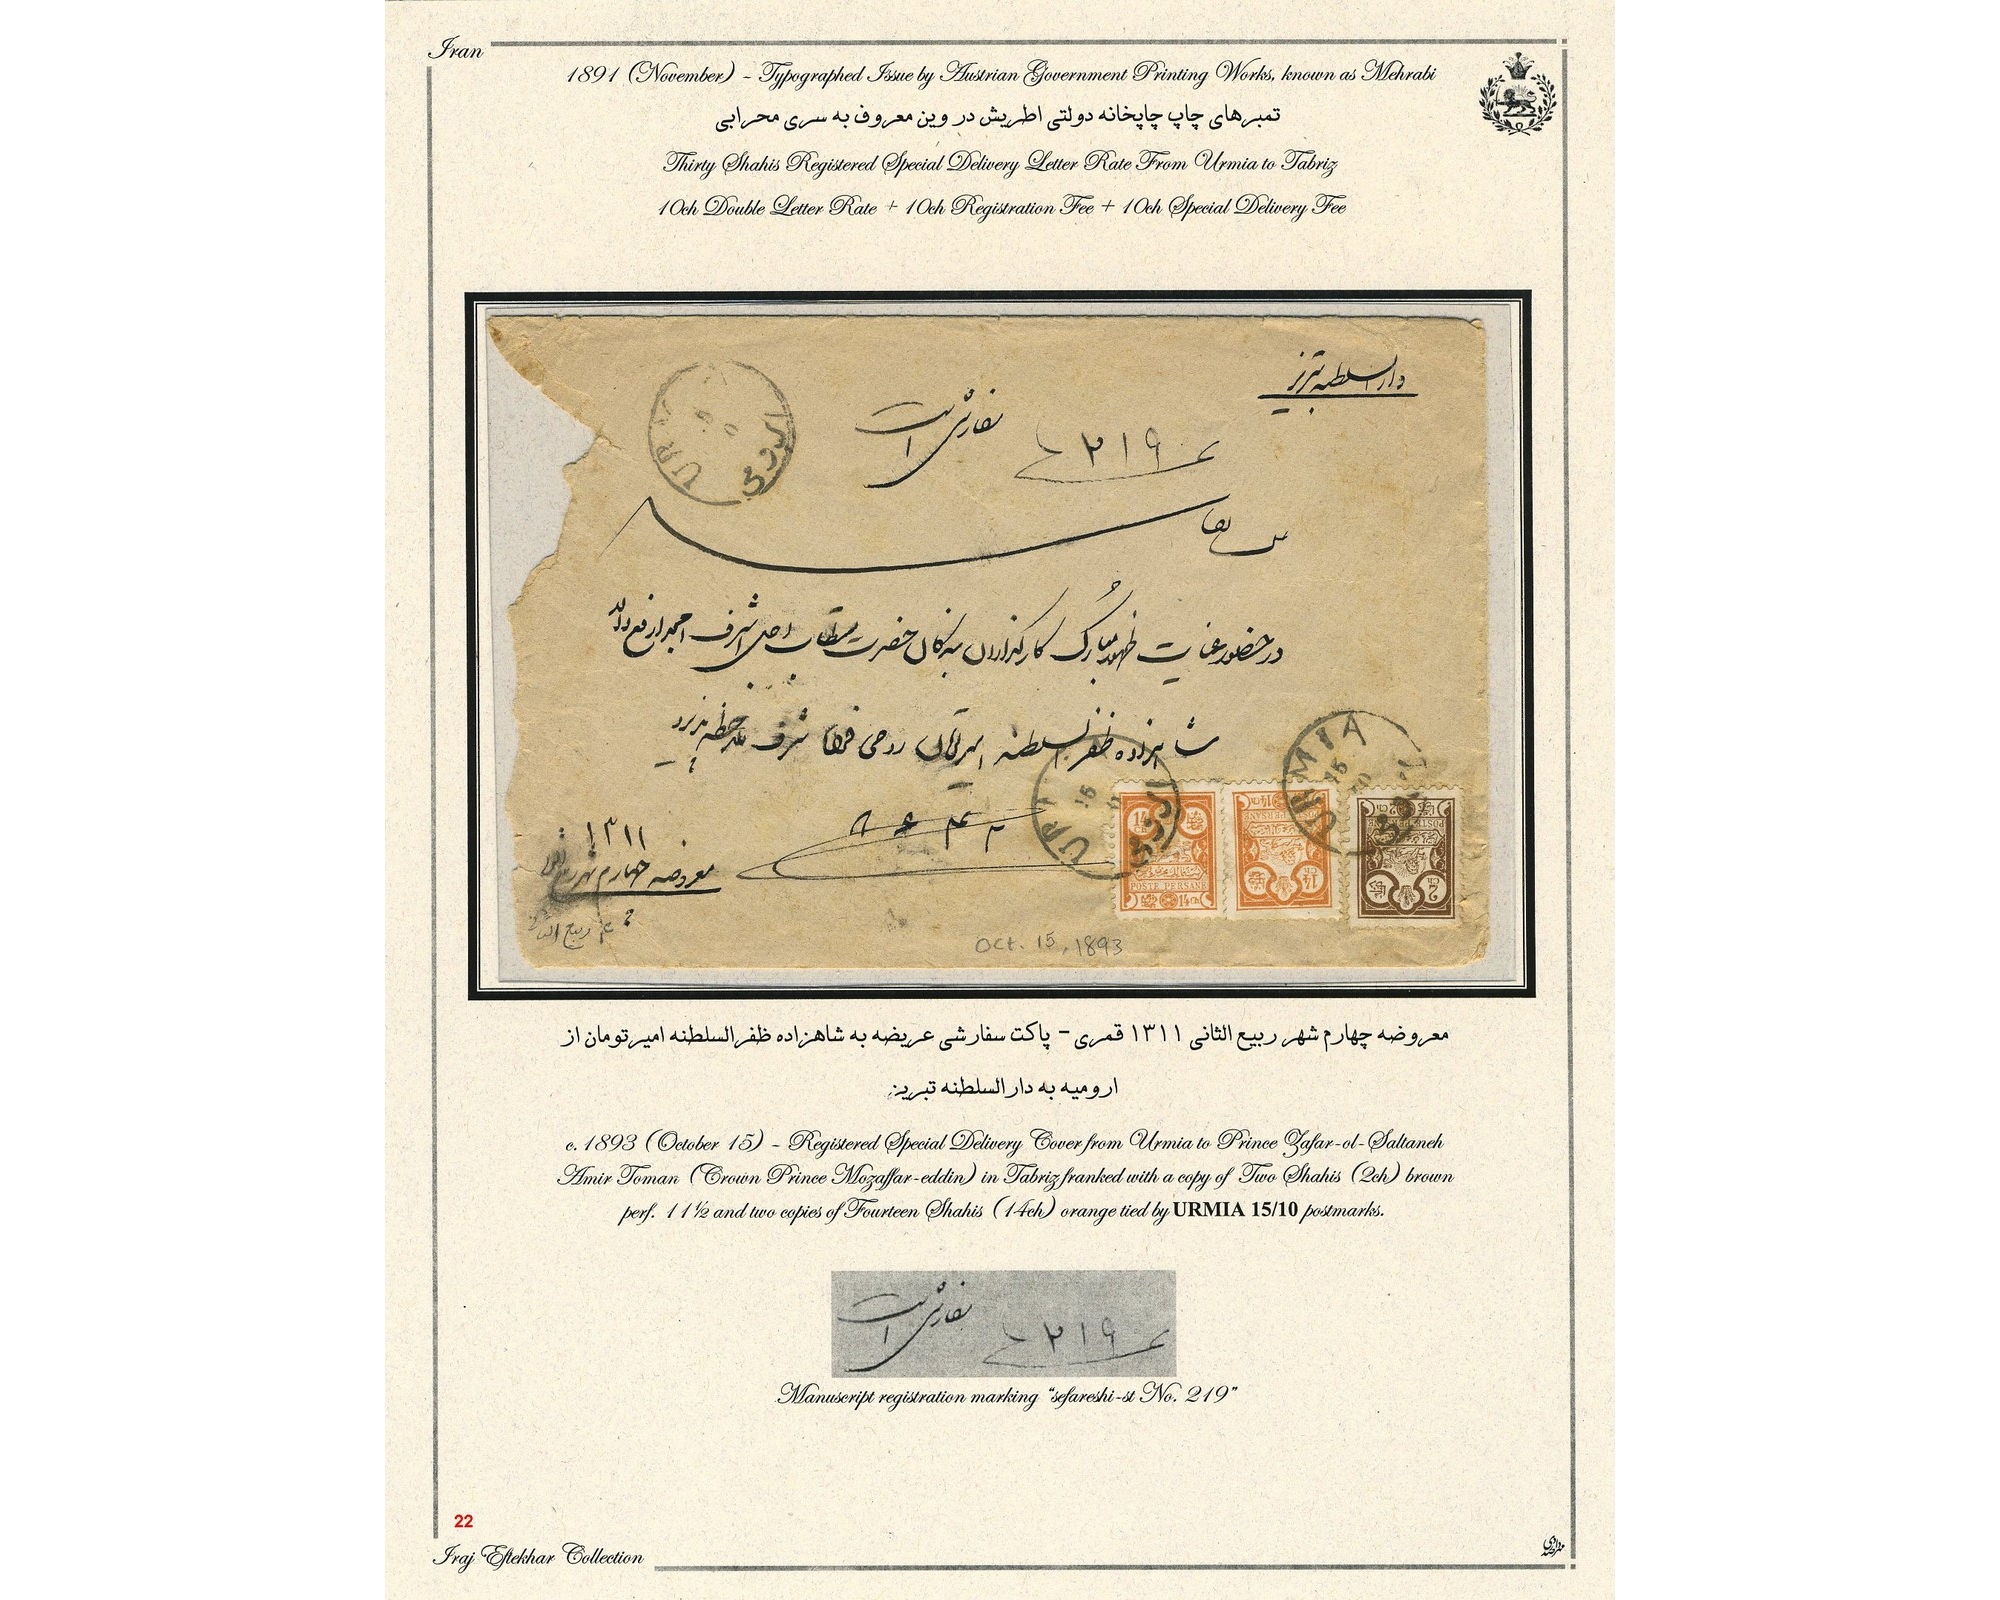 Iran
1891 (November) - Typographed Issue by Austrian Government Printing Works, known as Mehrabi
تمبرهای چاپ چاپخانه دولتی اطریش در وین معروف به سری محرابی
Thirty Shahis Registered Special Delivery Letter Rate From Urmia to Tabriz
10ch Double Letter Rate + 10ch Registration Fee + 10ch Special Delivery Fee
دارالسلطنه تبریز
سفارشی است
۲۱۹
در حضور مبارک کارگذاران بندگان حضرت مستطاب اجل اشرف امجد ارفع والا
شاهزاده ظفرالسلطنه امیرتومان روحی فداه شرف
۱۳۱۱
معروضه چهارم شهر ربیع
۴ ربیع الثانی
URMIA
15
14
14
2
POSTE PERSANE
14 ch
Oct. 15, 1893
معروضه چهارم شهر ربیع الثانی ۱۳۱۱ قمری - پاکت سفارشی عریضه به شاهزاده ظفرالسلطنه امیرتومان از
ارومیه به دارالسلطنه تبریز.
c. 1893 (October 15) - Registered Special Delivery Cover from Urmia to Prince Zafar-ol-Saltaneh
Amir Toman (Crown Prince Mozaffar-eddin) in Tabriz franked with a copy of Two Shahis (2ch) brown
perf. 11½ and two copies of Fourteen Shahis (14ch) orange tied by URMIA 15/10 postmarks.
سفارشی است
۲۱۹
Manuscript registration marking "sefareshi-st No. 219"
22
Iraj Eftekhar Collection